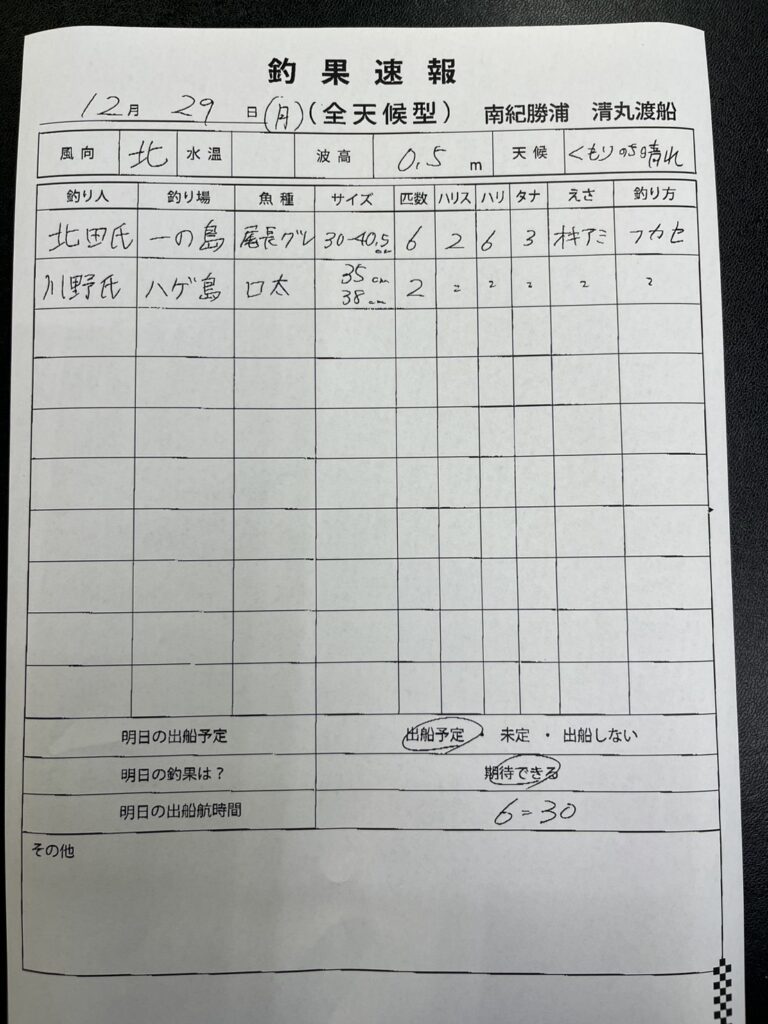 釣果速報
12月 29日(月)(全天候型) 南紀勝浦 清丸渡船
風向 北 水温 波高 0.5 m 天候 くもりのち晴れ
釣り人 釣り場 魚種 サイズ 匹数 ハリス ハリ タナ えさ 釣り方
北田氏 一の島 尾長グレ 30-40.5cm 6 2 6 3 アミ フカセ
川野氏 ハゲ島 口太 35cm 38cm 2 〃 〃 〃 〃 〃
明日の出船予定 出船予定・未定・出船しない
明日の釣果は? 期待できる
明日の出船航時間 6=30
その他